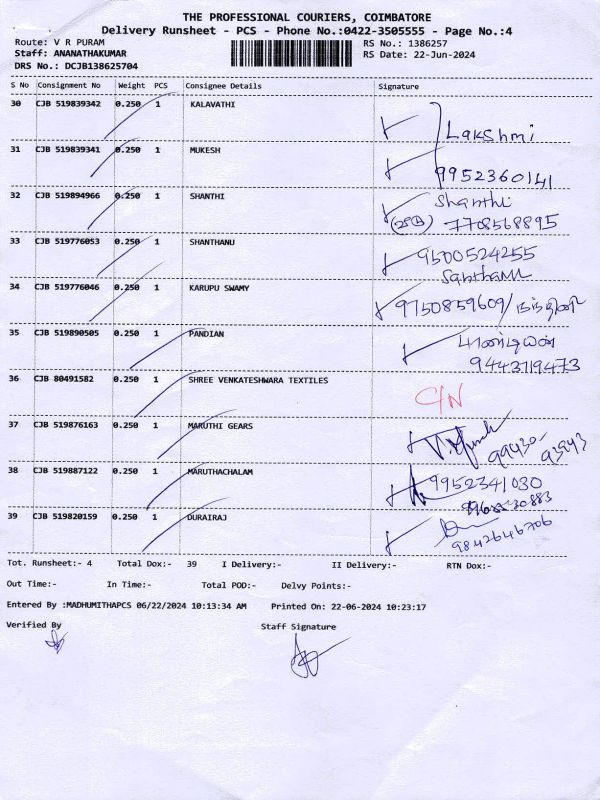 THE PROFESSIONAL COURIERS, COIMBATORE
Delivery Runsheet - PCS - Phone No.:0422-3505555 - Page No.:4
Route: V R PURAM
RS No.: 1386257
Staff: ANANATHAKUMAR
RS Date: 22-Jun-2024
DRS No.: DCJB138625704
S No Consignment No Weight PCS Consignee Details Signature
30 CJB 519839342 0.250 1 KALAVATHI
Lakshmi
31 CJB 519839341 0.250 1 MUKESH
9952360141
32 CJB 519894966 0.250 1 SHANTHI Shanthi
7708568895
33 CJB 519776053 0.250 1 SHANTHANU 9500524255
Santhanu
34 CJB 519776046 0.250 1 KARUPU SWAMY 9750859609/நந்தினி
35 CJB 519890505 0.250 1 PANDIAN பாண்டியன்
9443719473
36 CJB 80491582 0.250 1 SHREE VENKATESHWARA TEXTILES C/N
37 CJB 519876163 0.250 1 MARUTHI GEARS 99430-
93943
38 CJB 519887122 0.250 1 MARUTHACHALAM 9952341030
39 CJB 519820159 0.250 1 DURAIRAJ
9842646706
Tot. Runsheet:- 4 Total Dox:- 39 I Delivery:- II Delivery:- RTN Dox:-
Out Time:- In Time:- Total POD:- Delvy Points:-
Entered By :MADHUMITHAPCS 06/22/2024 10:13:34 AM Printed On: 22-06-2024 10:23:17
Verified By Staff Signature